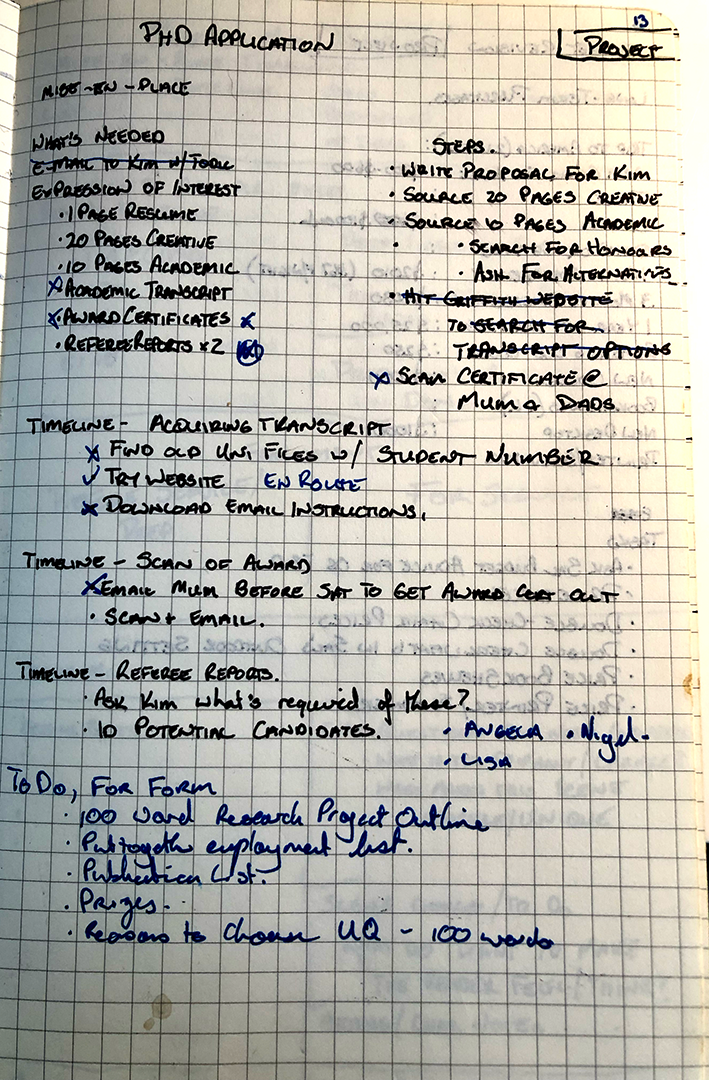 13
PHD APPLICATION
PROJECT
MISE-EN-PLACE
WHAT'S NEEDED
E-MAIL TO KIM W/
EXPRESSION OF INTEREST
· 1 PAGE RESUME
· 20 PAGES CREATIVE
· 10 PAGES ACADEMIC
x ACADEMIC TRANSCRIPT
x AWARD CERTIFICATES x
· REFEREE REPORTS x2
STEPS.
· WRITE PROPOSAL FOR KIM
· SOURCE 20 PAGES CREATIVE
· SOURCE 10 PAGES ACADEMIC
· · SEARCH FOR HONOURS
· ASK FOR ALTERNATIVES
· HIT GRIFFITH WEBSITE
TO SEARCH FOR
TRANSCRIPT OPTIONS
x SCAN CERTIFICATE @
MUM & DADS
TIMELINE - ACQUIRING TRANSCRIPT
x FIND OLD UNI FILES W/ STUDENT NUMBER
✓ TRY WEBSITE EN ROUTE
x DOWNLOAD EMAIL INSTRUCTIONS.
TIMELINE - SCAN OF AWARD
x EMAIL MUM BEFORE SAT TO GET AWARD CERT OUT
· SCAN + EMAIL.
TIMELINE - REFEREE REPORTS.
· ASK KIM what's required of these?
· 10 POTENTIAL CANDIDATES. · ANGELA · Nigel-
· LISA
TO DO, FOR FORM
· 100 word Research Project Outline
· Put together employment list.
· Publication List.
· Prizes.
· Reasons to choose UQ - 100 words